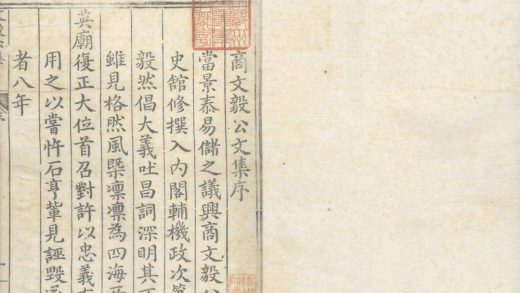 商文毅公文集序
當景泰易儲之議興商文毅公
史館修撰入內閣輔機政次第
毅然倡大義吐昌詞深明其不
雖見格然風槩凛凛為四海
英廟復正大位首召對許以忠義
用之以嘗忤石亨輩見誣毀
者八年